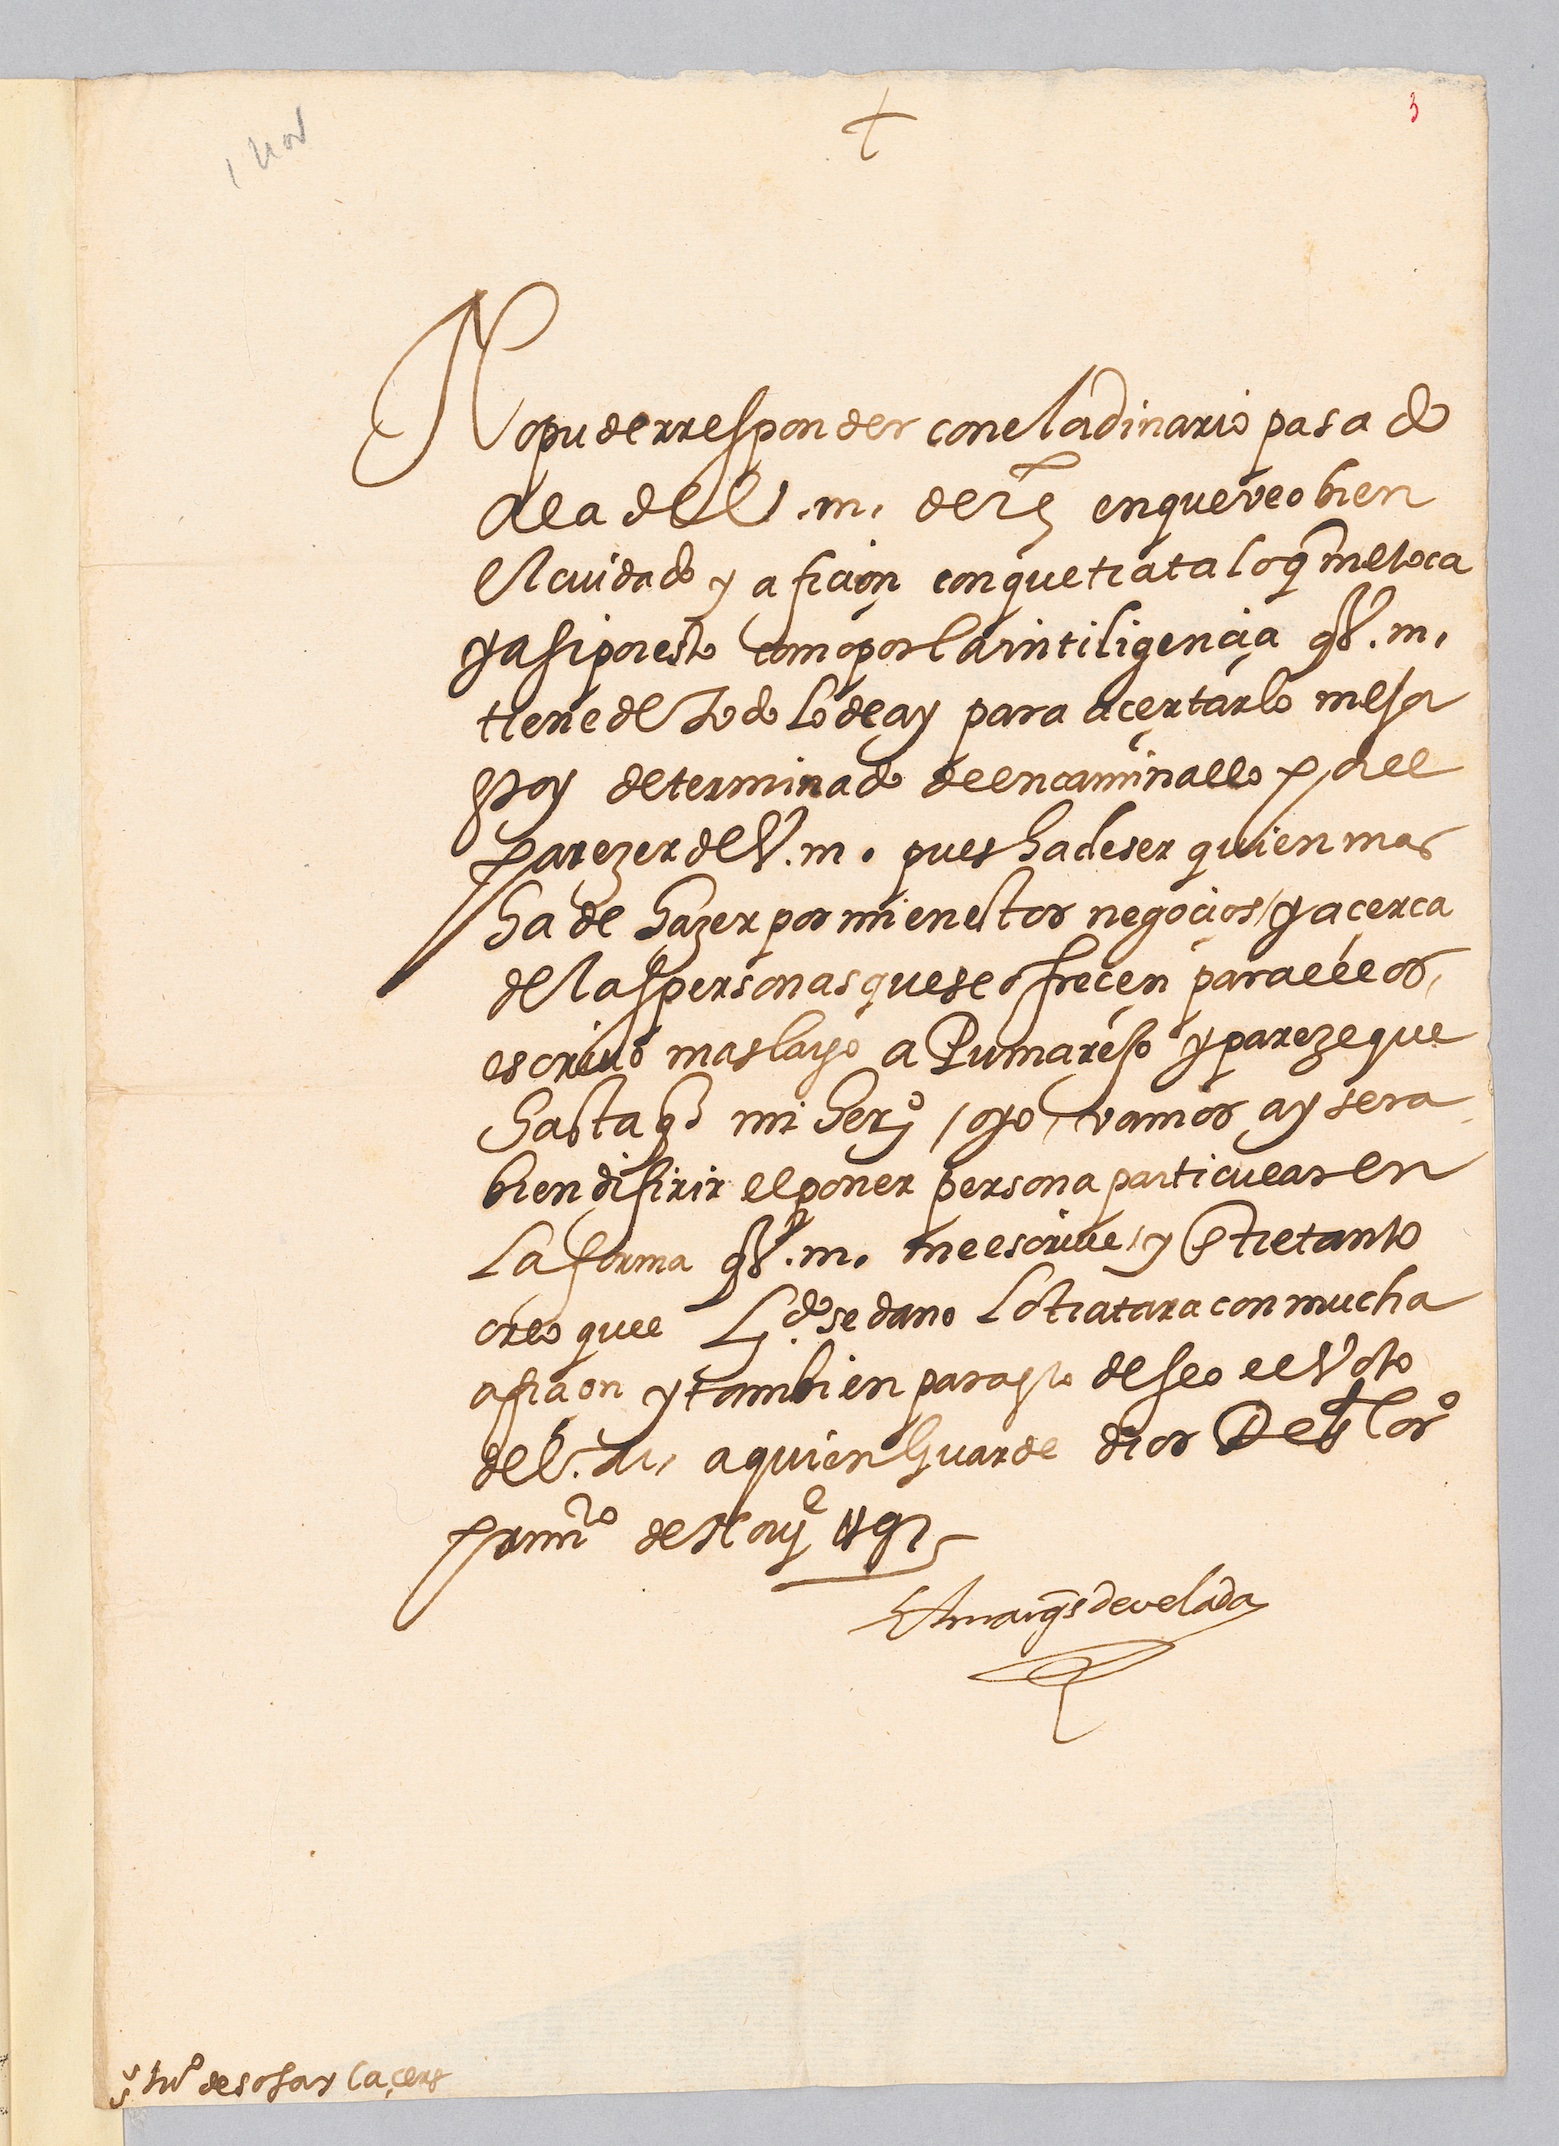 1 Nov
3
No pude rresponder con el ordinario pasado
a la de V. m. de en que veo bien
el cuidado y aficion con que trata lo q̃ me toca
y asi por esto como por la intiligencia q̃ V. m.
tiene de todo lo de ay para acertarlo mejor
estoy determinado de encaminallo por el
parezer de V. m. pues ha de ser quien mas
ha de hazer por mi en estos negocios / y acerca
de las personas que se ofrecen para ellos,
escrivo mas largo a Pumarejo y pareze que
hasta q̃ mi herº / o yo / vamos ay sera
bien difirir el poner persona particular en
la forma q̃ V. m. me escrive / y entretanto
creo que el L.do sedano lo tratara con mucha
aficion y tambien para esto deseo el Voto
de V. m. a quien guarde dios De S. Lorº
primrº de Novᵉ 1591
El marq̃s de velada
s.r hrº de soto y caçeres